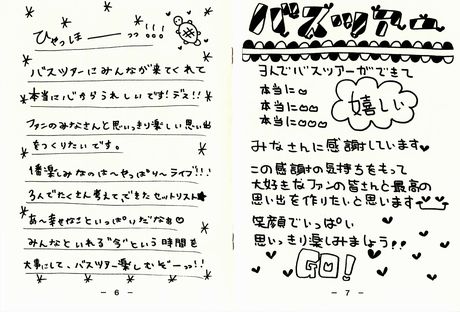 ひゃっほーーーっっ!!!
バスツアーにみんなが来てくれて
本当に心からうれしいです!デス!!
ファンのみなさんと思いっきり楽しい思い出
をつくりたいです。
1番楽しみなのは〜やっぱり〜ライブ!!
3人でたくさん考えて、できたセットリスト★
あ〜幸せなこといっぱいだなぁ♡
みんなといれる"今"という時間を
大事にして、バスツアー楽しむぞーっっ!!
- 6 -
バスツアー
3人でバスツアーができて
本当に♡
本当に♡♡
本当に♡♡♡
嬉しい
みなさんに感謝しています♥
この感謝の気持ちをもって
大好きなファンの皆さんと最高の
思い出を作りたいと思います
笑顔でいっぱい
思いっきり楽しみましょう!!
GO!
- 7 -